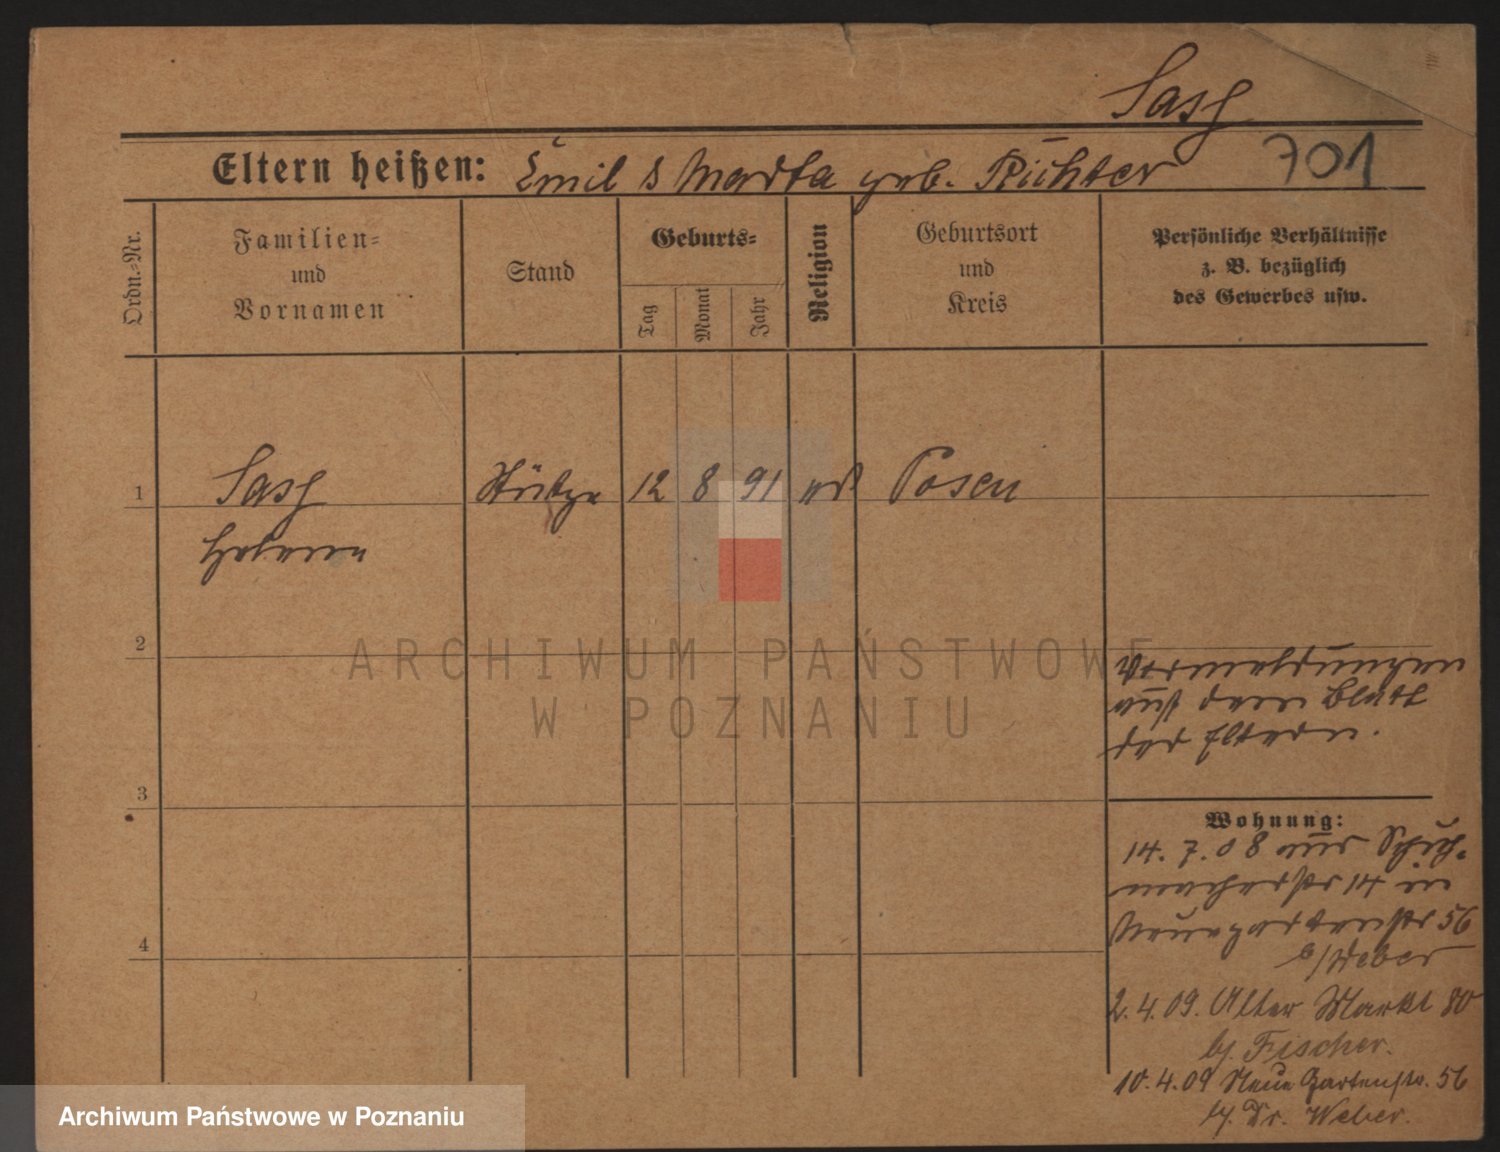 Sass
Eltern heißen: Emil & Martha geb. Richter 701
Ordn.=Nr.
Familien=
und
Vornamen
Stand
Geburts=
Tag
Monat
Jahr
Religion
Geburtsort
und
Kreis
Persönliche Verhältnisse
z. B. bezüglich
des Gewerbes usw.
1 Sass Stütze 12 8 91 Posen
Helene
2
ARCHIWUM PAŃSTWOWE
W POZNANIU
Vermeldungen
auf dem Blatt
der Eltern.
3
Wohnung:
14. 7. 08 aus Schuh-
macherstr 14 in
Neuegartenstr 56
b/Weber
4
2. 4. 09. Alter Markt 80
b/. Fischer.
10. 4. 09 Neue Gartenstr. 56
b/. Dr. Weber.
Archiwum Państwowe w Poznaniu